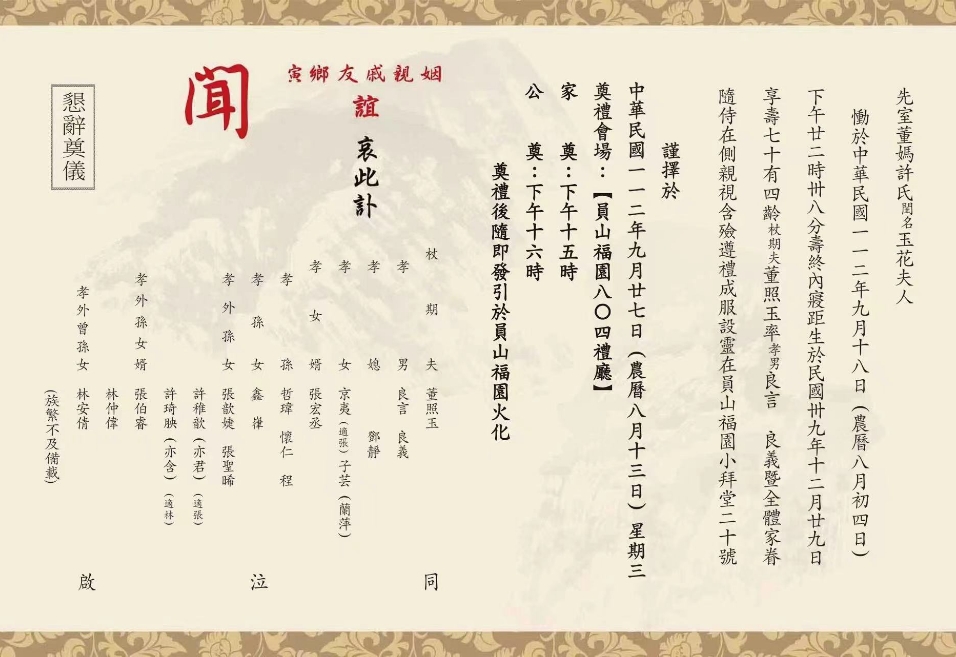 先室董媽許氏閨名玉花夫人
慟於中華民國一一二年九月十八日(農曆八月初四日)
下午廿二時卅八分壽終內寢距生於民國卅九年十二月廿九日
享壽七十有四齡杖期夫董照玉率孝男良言 良義暨全體家眷
隨侍在側親視含殮遵禮成服設靈在員山福園小拜堂二十號
謹擇於
中華民國一一二年九月廿七日(農曆八月十三日)星期三
奠禮會場：【員山福園八〇四禮廳】
家 奠：下午十五時
公 奠：下午十六時
奠禮後隨即發引於員山福園火化
姻親戚友鄉寅
誼
哀此訃
聞
杖期夫 董照玉
孝男 良言 良義
孝媳 鄧靜
孝女 京夷(適張)子芸(蘭萍)
孝女婿 張宏丞
孝孫 哲瑋 懷仁 程
孝孫女 鑫嵂
孝外孫女 張歆婕 張聖晞
許稚歆(亦君)(適張)
許琦腴(亦含)(適林)
孝外孫女婿 張伯睿
林仲偉
孝外曾孫女 林安倩
(族繁不及備載)
同
泣
啟
懇辭奠儀